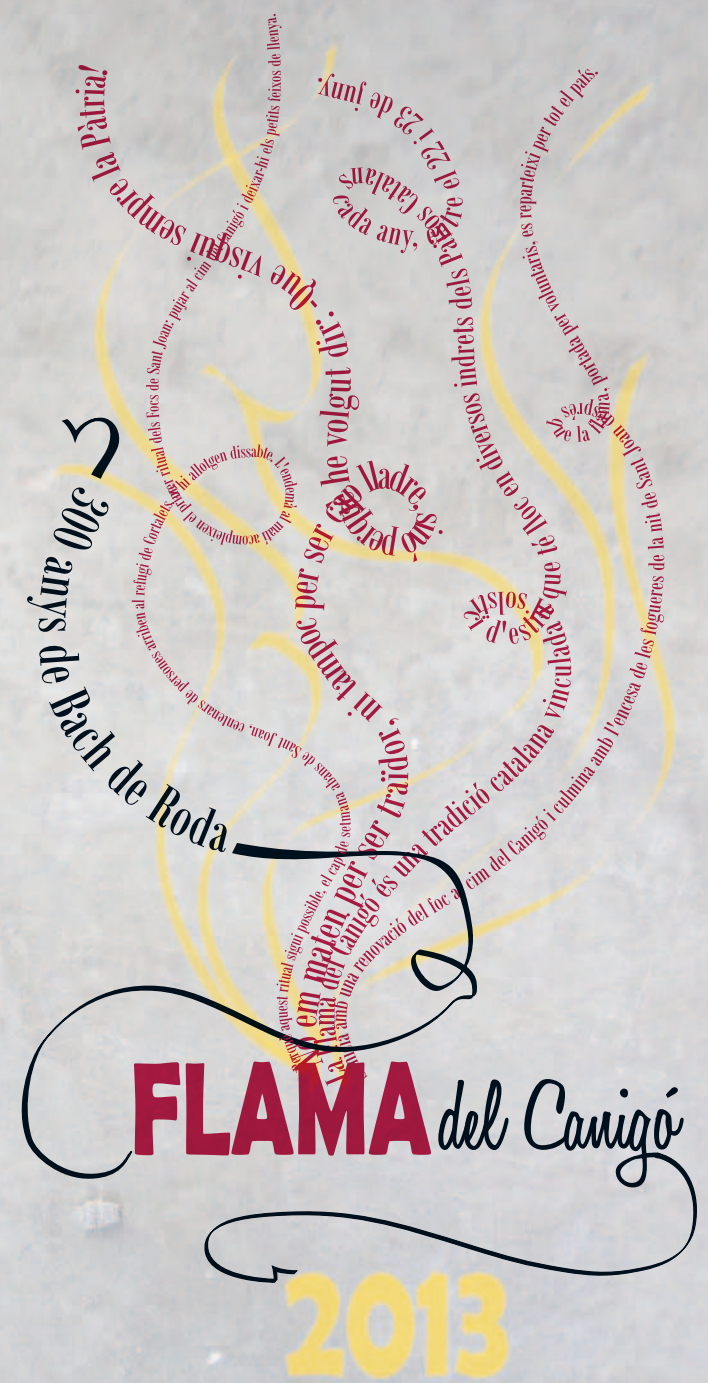 No em maten per ser traïdor, ni tampoc per ser lladre, sinó perquè he volgut dir: -Que visqui sempre la Pàtria!
La Flama del Canigó és una tradició catalana vinculada solstici d'estiu que té lloc en diversos indrets dels Països Catalans cada any, entre el 22 i 23 de juny.
amb una renovació del foc al cim del Canigó i culmina amb l'encesa de les fogueres de la nit de Sant Joan després que la flama, portada per voluntaris, es reparteixi per tot el país.
Perquè aquest ritual sigui possible, el cap de setmana abans de Sant Joan, centenars de persones arriben al refugi de Cortalets hi allotgen dissabte. L'endemà al matí acompleixen el primer ritual dels Focs de Sant Joan: pujar al cim del Canigó i deixar-hi els petits feixos de llenya.
300 anys de Bach de Roda
FLAMA del Canigó
2013